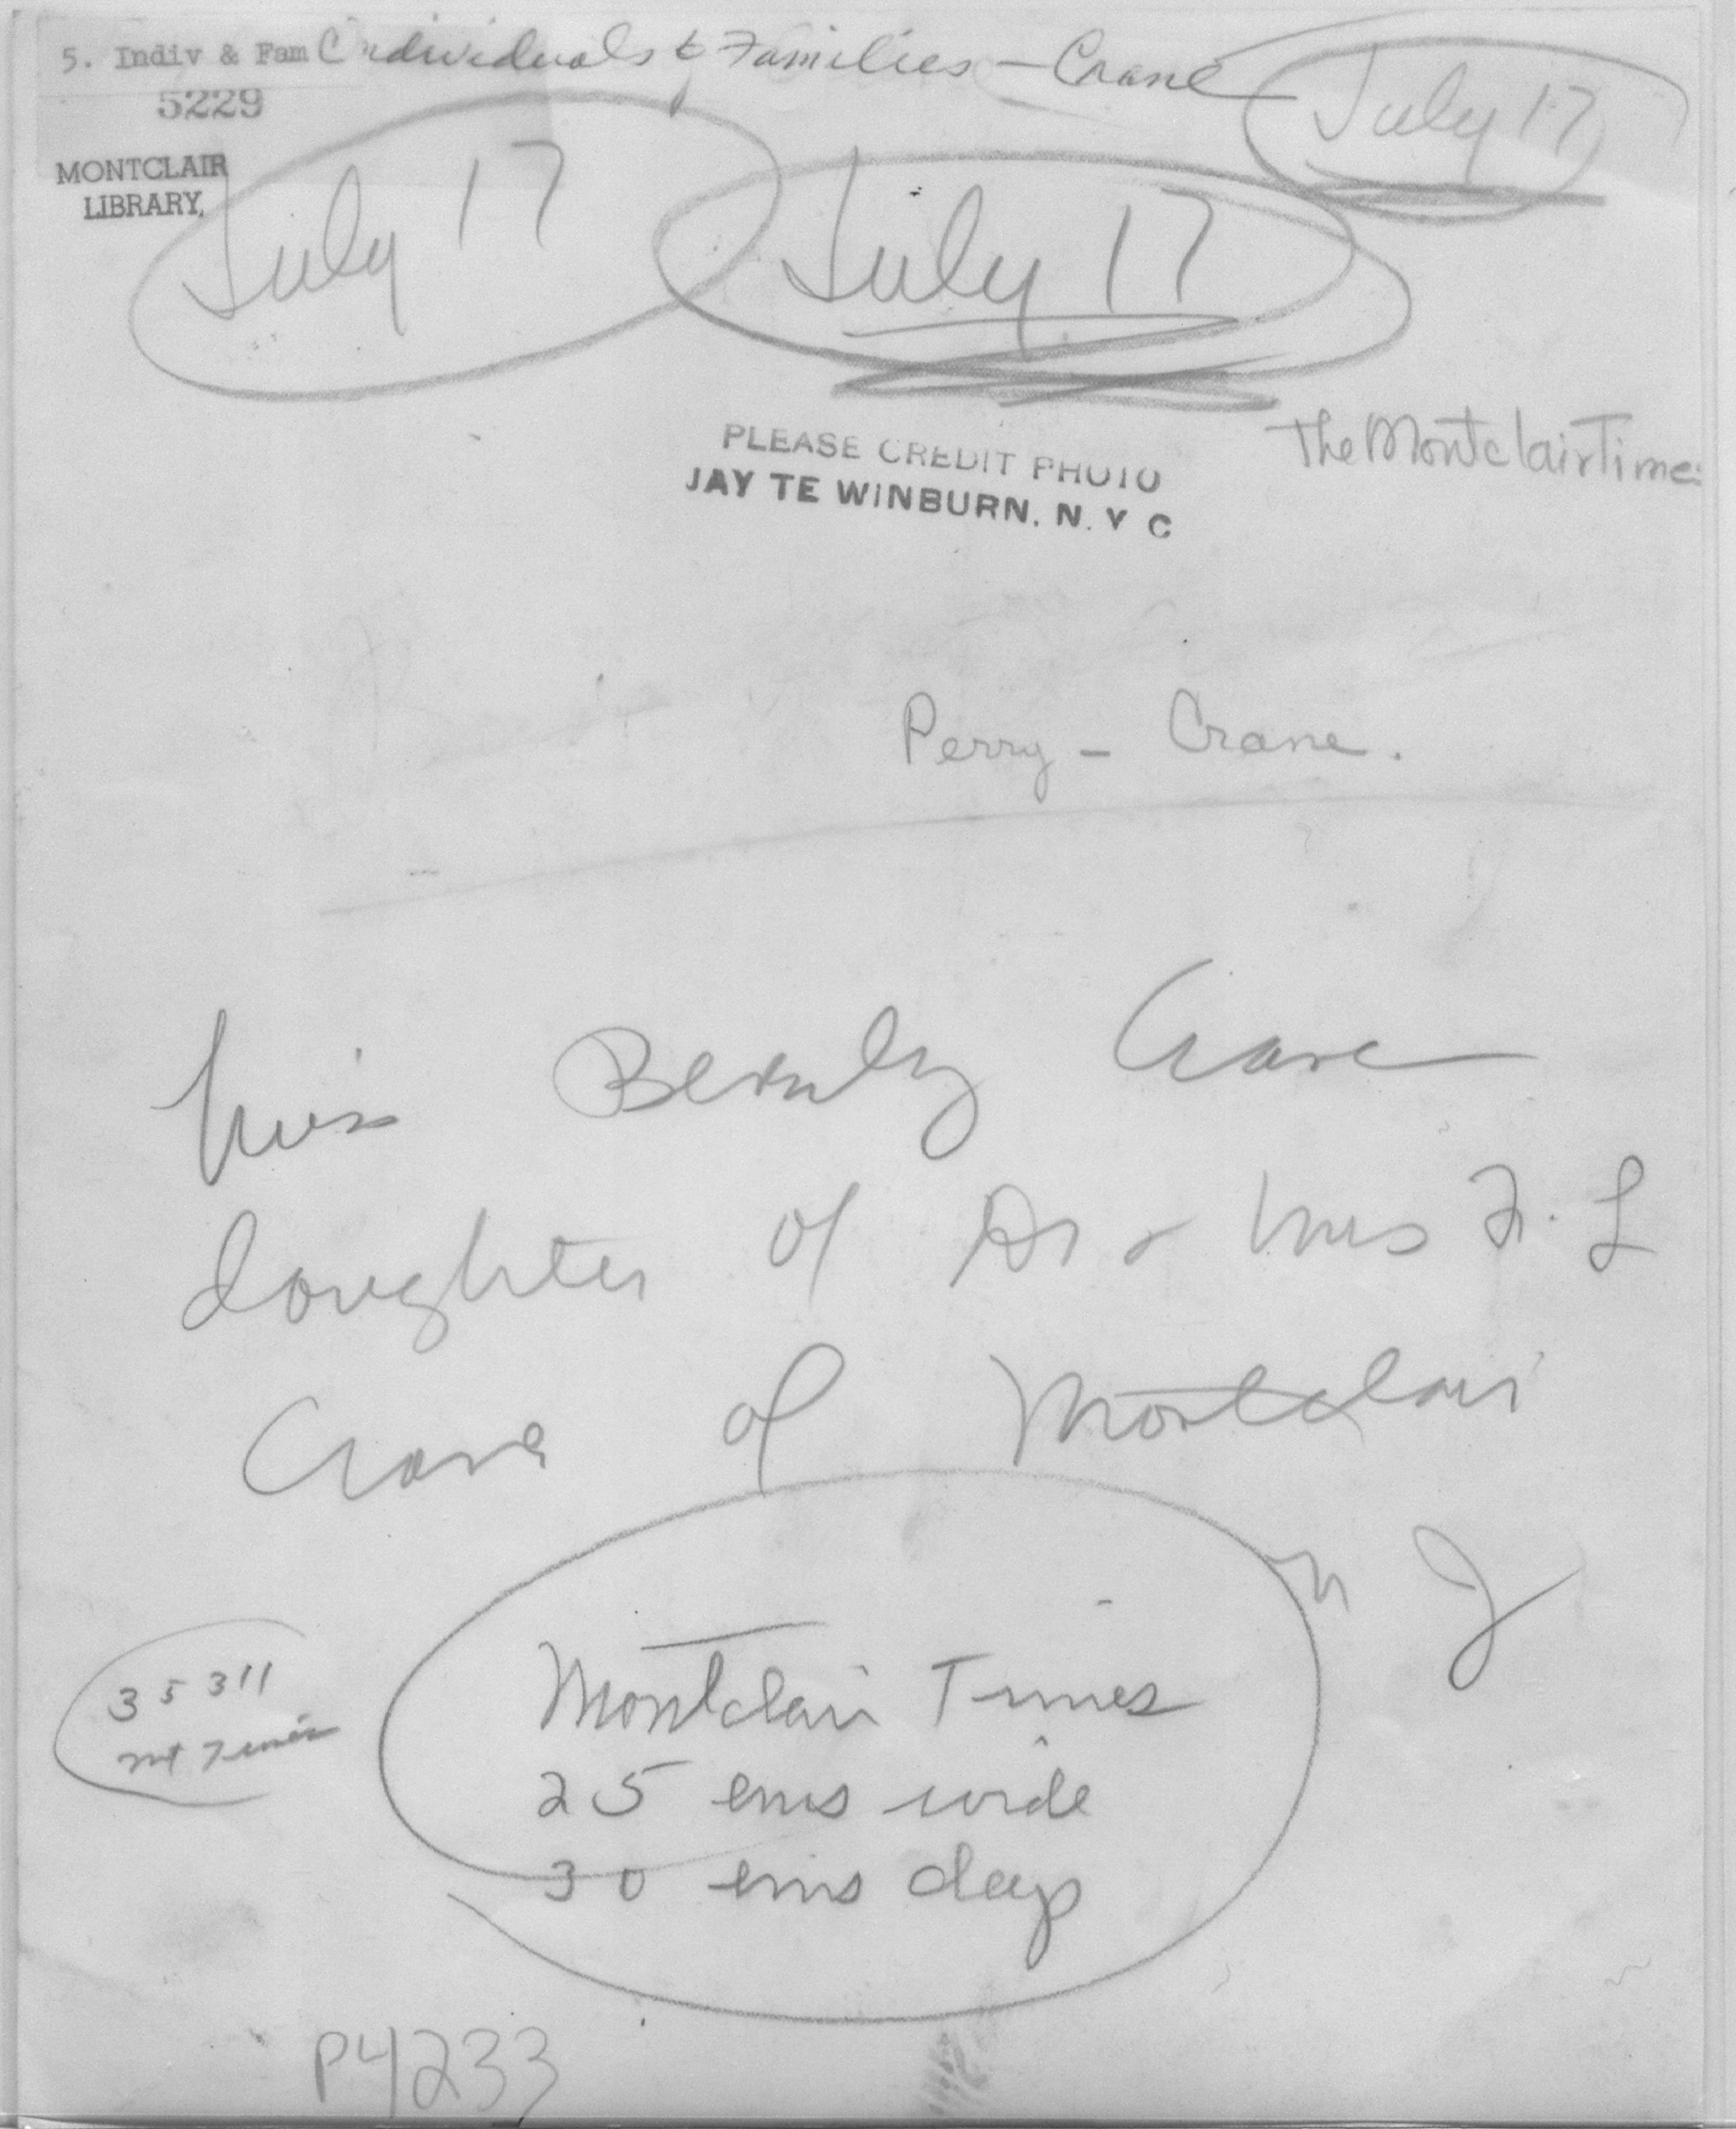 5. Indiv & Fam C Individuals & Families - Crane
5229
MONTCLAIR
LIBRARY,
July 17
July 17
July 17
PLEASE CREDIT PHOTO
JAY TE WINBURN. N. Y C
The Montclair Times
Perry - Crane.
Miss Beverly Crane
daughter of Dr & Mrs F. L
Crane of Montclair
N J
35311
Mt Times
Montclair Times
25 ems wide
30 ems deep
P4233